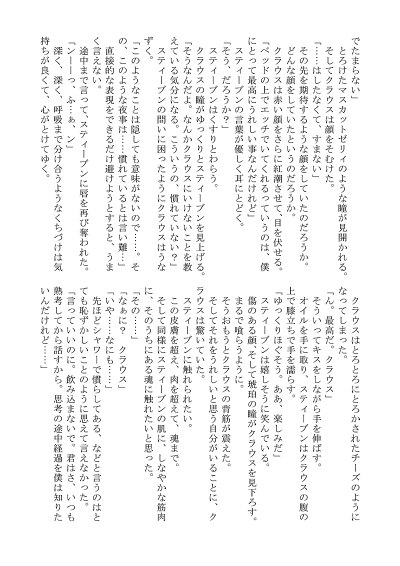 でたまらない」
　とろけたマスカットゼリィのような瞳が見開かれる。
　そしてクラウスは顔をそむけた。
「……はしたなくて、すまない」
　その先を期待するような顔をしていたのだろうか。
　どんな顔をしていたというのだろうか。
　クラウスは赤い顔をさらに紅潮させて、目を伏せる。
「ベッドの上でエッチでいてくれるっていうのは、僕
にとって最高にうれしい事なんだけれど」
　スティーブンの言葉が優しく耳にとどく。
「そう、だろうか？」
　スティーブンはくすりとわらう。
　クラウスの瞳がゆっくりとスティーブンを見上げる。
「そうなんだよ。なんかクラウスにいけないことを教
えている気分になる。こういうの、慣れていない？」
　スティーブンの問いに困ったようにクラウスはうな
ずく。
「このようなことは隠しても意味がないので……。そ
の、このような夜事は……慣れているとは言い難…」
　直接的な表現をできるだけ避けようとすると、うま
く言えない。
　途中まで言って、スティーブンに唇を再び奪われた。
「ン――っ、ふ、ぁ、ン」
　深く、深く、呼吸まで分け合うようなくちづけは気
持ちが良くて、心がとけてゆく。
　クラウスはとろとろにとろかされたチーズのように
なってしまった。
「ん。最高だ。クラウス」
　そういってキスをしながら手を伸ばす。
　オイルを手に取り、スティーブンはクラウスの腹の
上で膝立ちで手を濡らす。
「ゆっくりほぐそう。ああ、楽しみだ」
　スティーブンは嬉しそうに笑んでいる。
　傷のある顔、そして琥珀の瞳がクラウスを見下ろす。
　まるで喰らうように。
　そうおもうとクラウスの背筋が震えた。
　そしてそれをうれしいと思う自分がいることに、ク
ラウスは驚いていた。
　スティーブンに触れられたい。
　この皮膚を超え、肉を超えて、魂まで。
　そして同様にスティーブンの肌に、しなやかな筋肉
に、そのうちにある魂に触れたいと思った。
「その……」
「なぁに？　クラウス」
「いや……なにも……」
　先ほどシャワーで慣らしてある、などと言うのはと
ても恥ずかしいことのように思えて言えなかった。
「言っていいのに。飲み込まないで。君はさ、いつも
熟考してから話すから。思考の途中経過を僕は知りた
いんだけれど……」